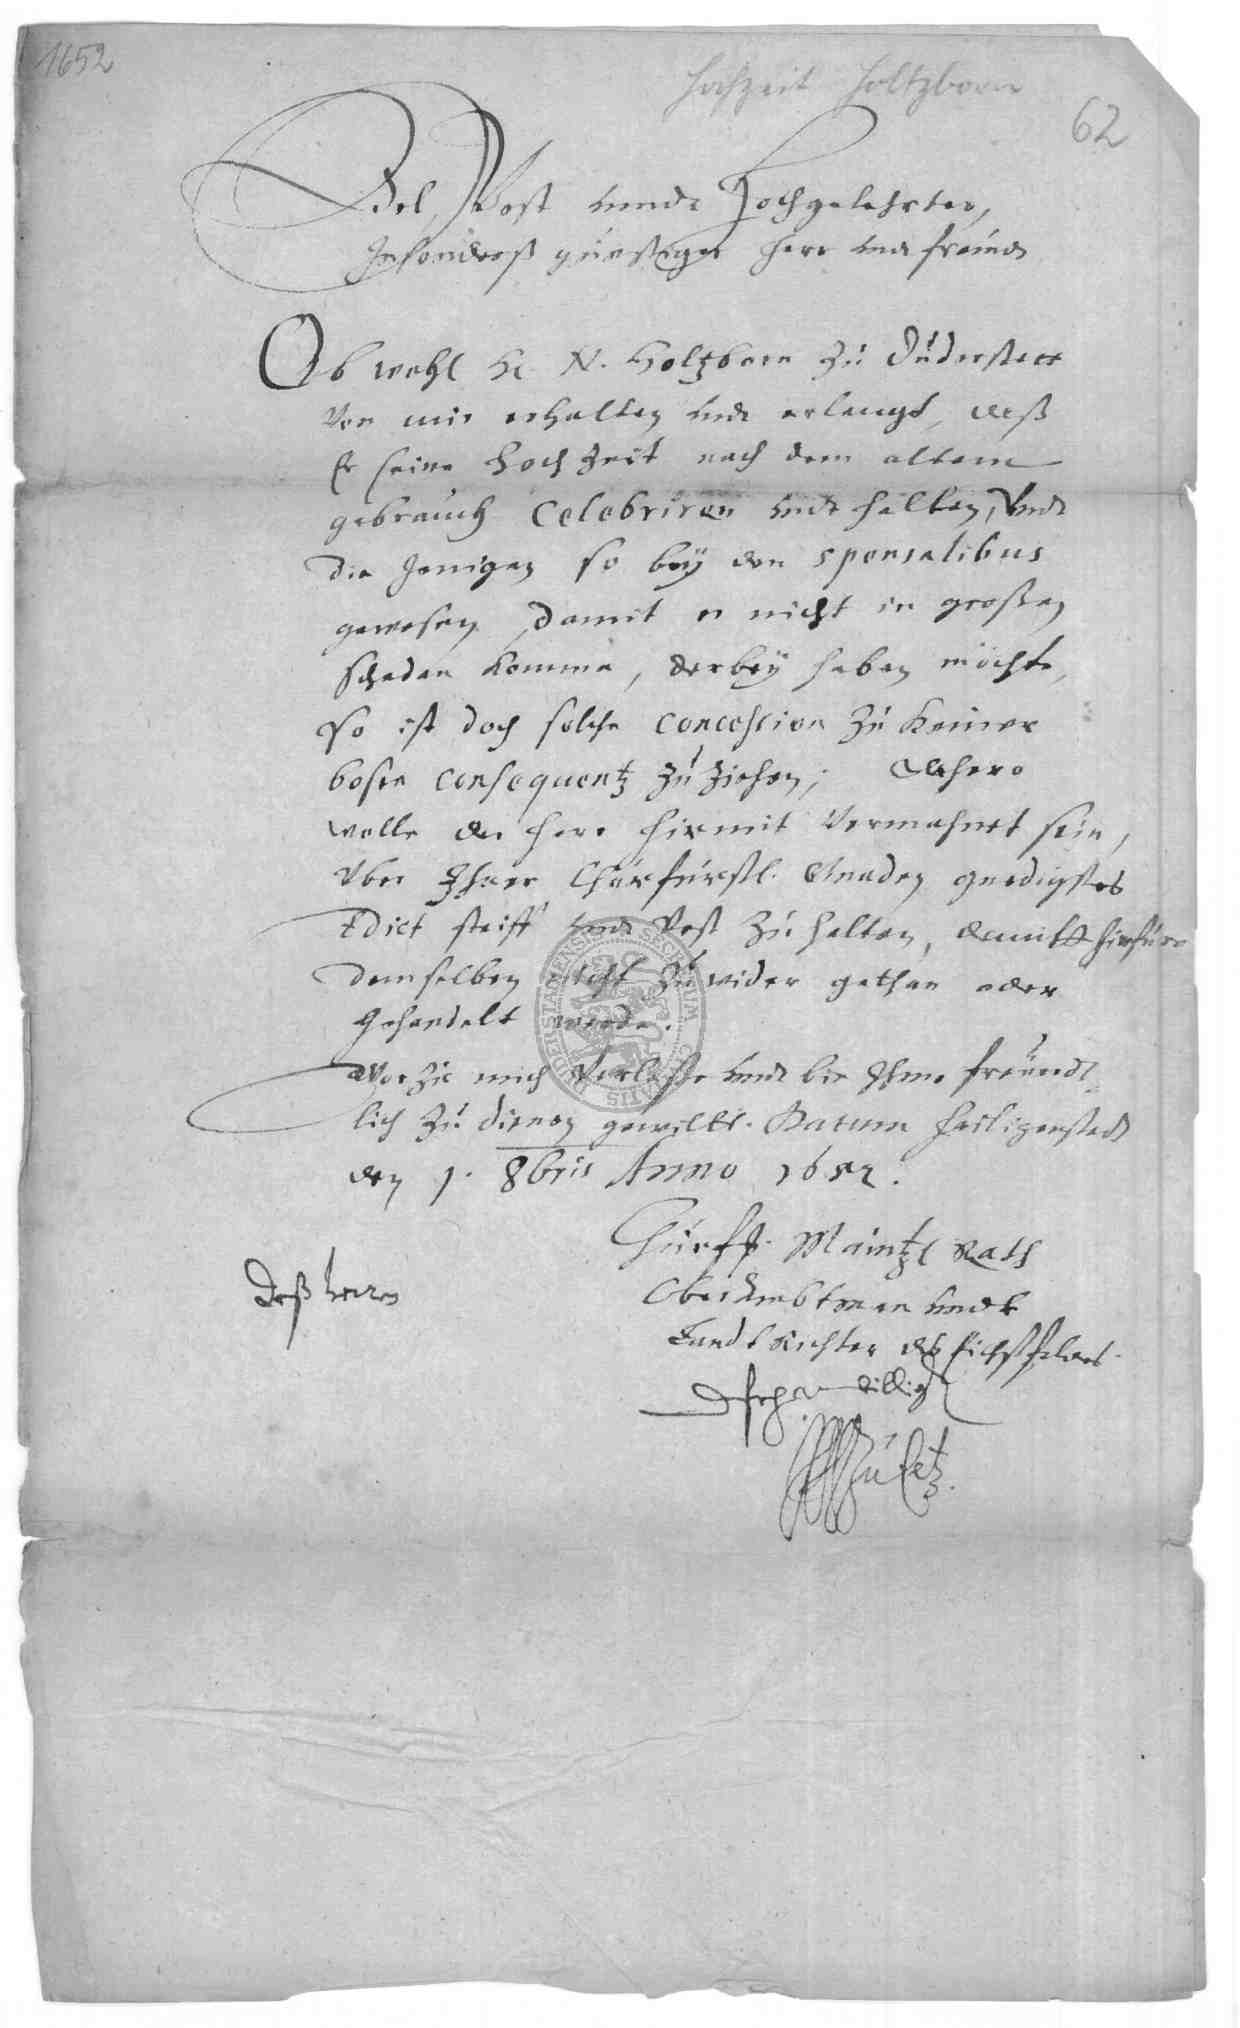 1652
Hochzeit Holtzborn
62
Edel, Vest unndt Hochgelehrter,
Insonderß günstiger Herr und freündt
Ob wohl H. N. Holtzborn zu Duderstatt
Von mir erhalten undt erlangt, daß
Er seine Hochzeit nach dem altem
gebrauch Celebriren undt halten, Undt
die Jenigen so bey den sponsalibus
gewesen, damit er nicht in großen
schaden komme, darbey haben möchte,
So ist doch solche concession zu keiner
bösen consequentz zu ziehen; Dahero
wolle der Herr hirmit Vermahnet sein,
Uber Ihrer Churfürstl. Gnaden gnedigstes
Edict steiff undt Vest zu halten, damitt hinfüro
demselben nicht zuwider gethan oder
gehandelt werde.
Worzu mich Verlaße undt bin Ihme freündt
lich zu dienen gewillt. Datum Heiligenstadt
den 1. 8bris Anno 1652.
Churfst. Maintzl Rath
Oberambtman undt
Landtrichter deß Eichßfeldes
Deß Herrn
williger
DUDERSTADENSIS SECRETUM CIVITATIS